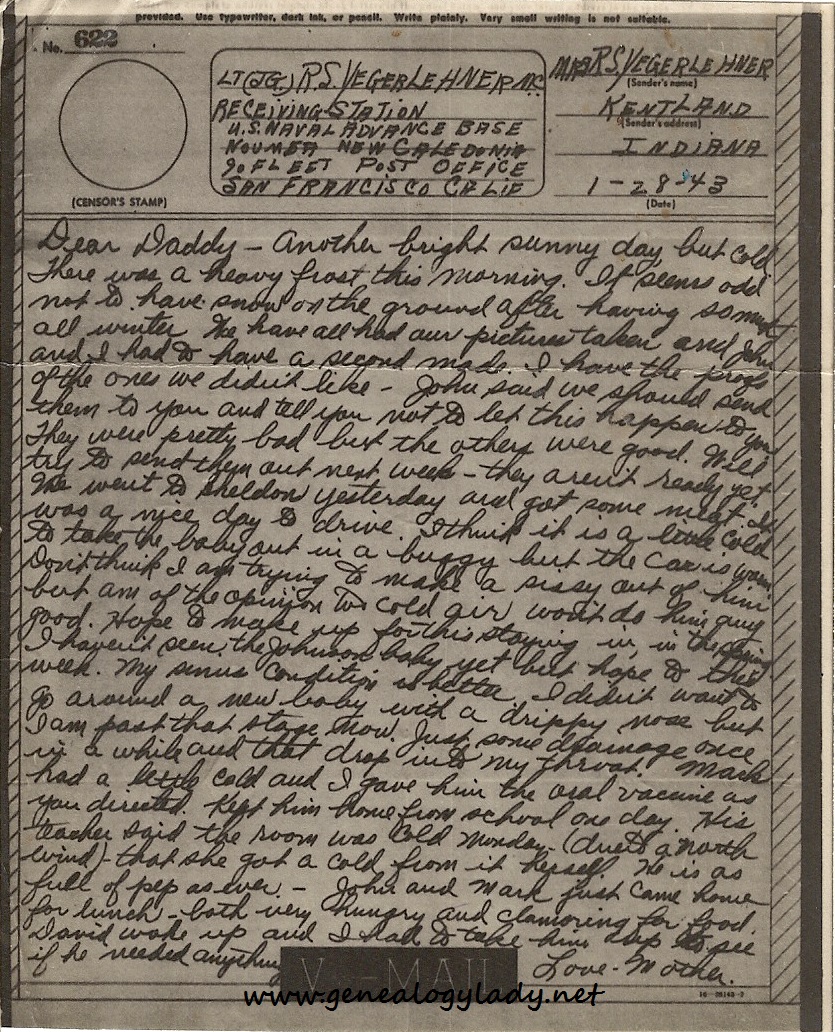 provided. Use typewriter, dark ink, or pencil. Write plainly. Very small writing is not suitable.
No. 622
(CENSOR'S STAMP)
LT (JG) R.S. VEGERLEHNER MC
RECEIVING STATION
U.S. NAVAL ADVANCE BASE
NOUMEA NEW CALEDONIA
% FLEET POST OFFICE
SAN FRANCISCO CALIF
MRS R.S. VEGERLEHNER
(Sender's name)
KENTLAND
(Sender's address)
INDIANA
1-28-43
(Date)
Dear Daddy - Another bright sunny day, but cold
There was a heavy frost this morning. It seems odd
not to have snow on the ground after having so much
all winter. We have all had our pictures taken and John
and I had to have a second made. I have the proofs
of the ones we didn't like - John said we should send
them to you and tell you not to let this happen to you
They were pretty bad but the others were good. Will
try to send them out next week - they aren't ready yet.
We went to Sheldon yesterday and got some meat. It
was a nice day to drive. I think it is a little cold
to take the baby out in a buggy but the car is warm.
Don't think I am trying to make a sissy out of him
but am of the opinion too cold air won't do him any
good. Hope to make up for this staying in, in the spring
I haven't seen the Johnson baby yet but hope to this
week. My sinus condition is better. I didn't want to
go around a new baby with a drippy nose but
I am past that stage now. Just some drainage once
in a while and that drop into my throat. Mark
had a little cold and I gave him the oral vaccine as
you directed. Kept him home from school one day. His
teacher said the room was cold Monday - (due to a north
wind) - that she got a cold from it herself. He is as
full of pep as ever - John and Mark just came home
for lunch - both very hungry and clamoring for food.
David woke up and I had to take him up to see
if he needed anything
Love - Mother.
V - MAIL
www.genealogylady.net
16-28143-2